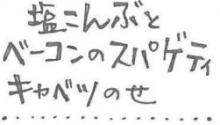 塩こんぶと
ベーコンのスパゲティ
キャベツのせ